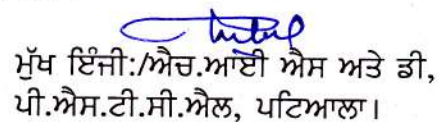 ਮੁੱਖ ਇੰਜੀ:/ਐਚ.ਆਈ ਐਸ ਅਤੇ ਡੀ,
ਪੀ.ਐਸ.ਟੀ.ਸੀ.ਐਲ, ਪਟਿਆਲਾ।